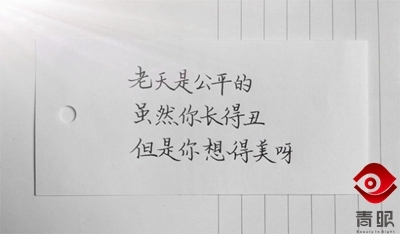 老天是公平的
虽然你长得丑
但是你想得美呀
青眼